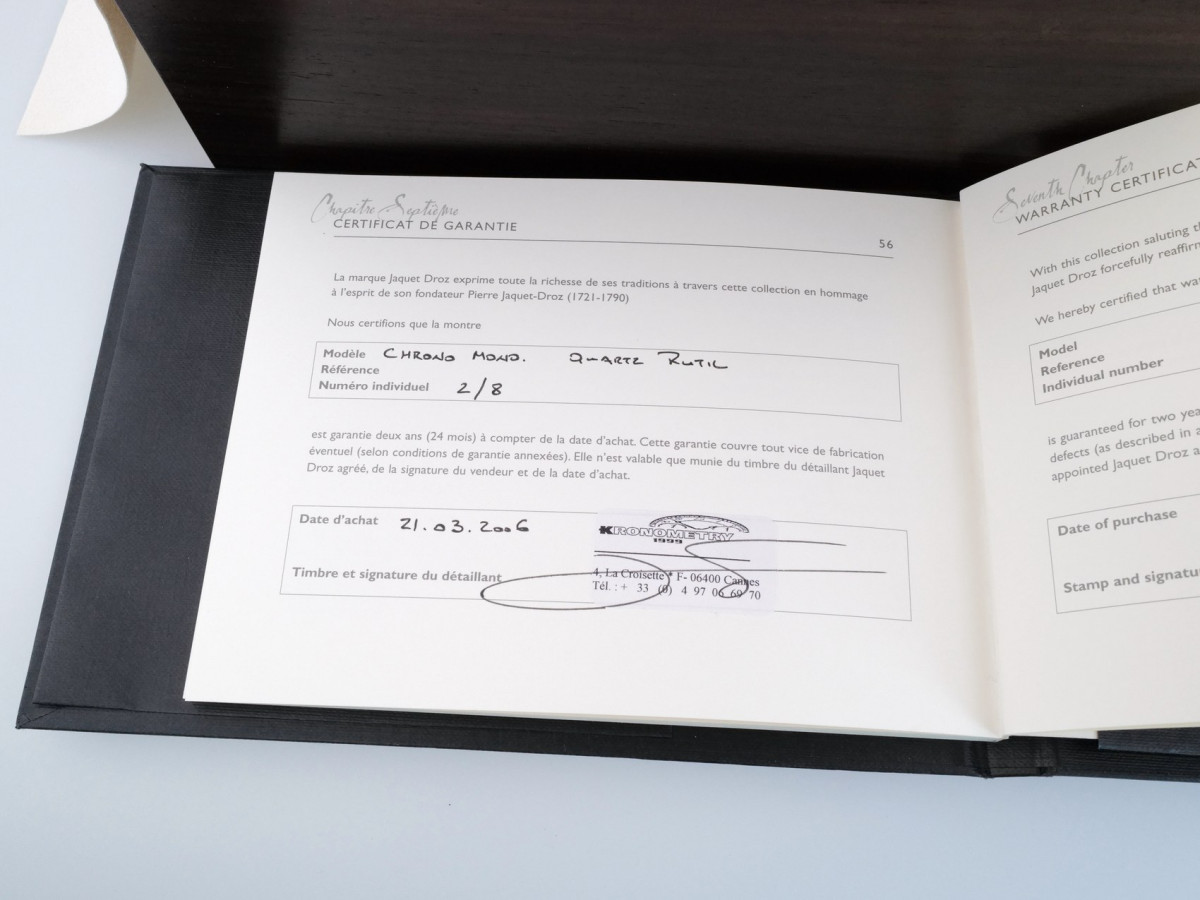 Chapitre Septième
CERTIFICAT DE GARANTIE
56
La marque Jaquet Droz exprime toute la richesse de ses traditions à travers cette collection en hommage
à l'esprit de son fondateur Pierre Jaquet-Droz (1721-1790)
Nous certifions que la montre
Modèle CHRONO MONO. QUARTZ RUTIL
Référence
Numéro individuel 2/8
est garantie deux ans (24 mois) à compter de la date d'achat. Cette garantie couvre tout vice de fabrication
éventuel (selon conditions de garantie annexées). Elle n'est valable que munie du timbre du détaillant Jaquet
Droz agréé, de la signature du vendeur et de la date d'achat.
Date d'achat 21.03.2006
KRONOMETRY
1999
Timbre et signature du détaillant
4, La Croisette * F- 06400 Cannes
Tél. : + 33 (0) 4 97 06 69 70
Seventh Chapter
WARRANTY CERTIFICA
With this collection saluting
Jaquet Droz forcefully reaffir
We hereby certified that
Model
Reference
Individual number
is guaranteed for two
defects (as described in
appointed Jaquet Droz
Date of purchase
Stamp and